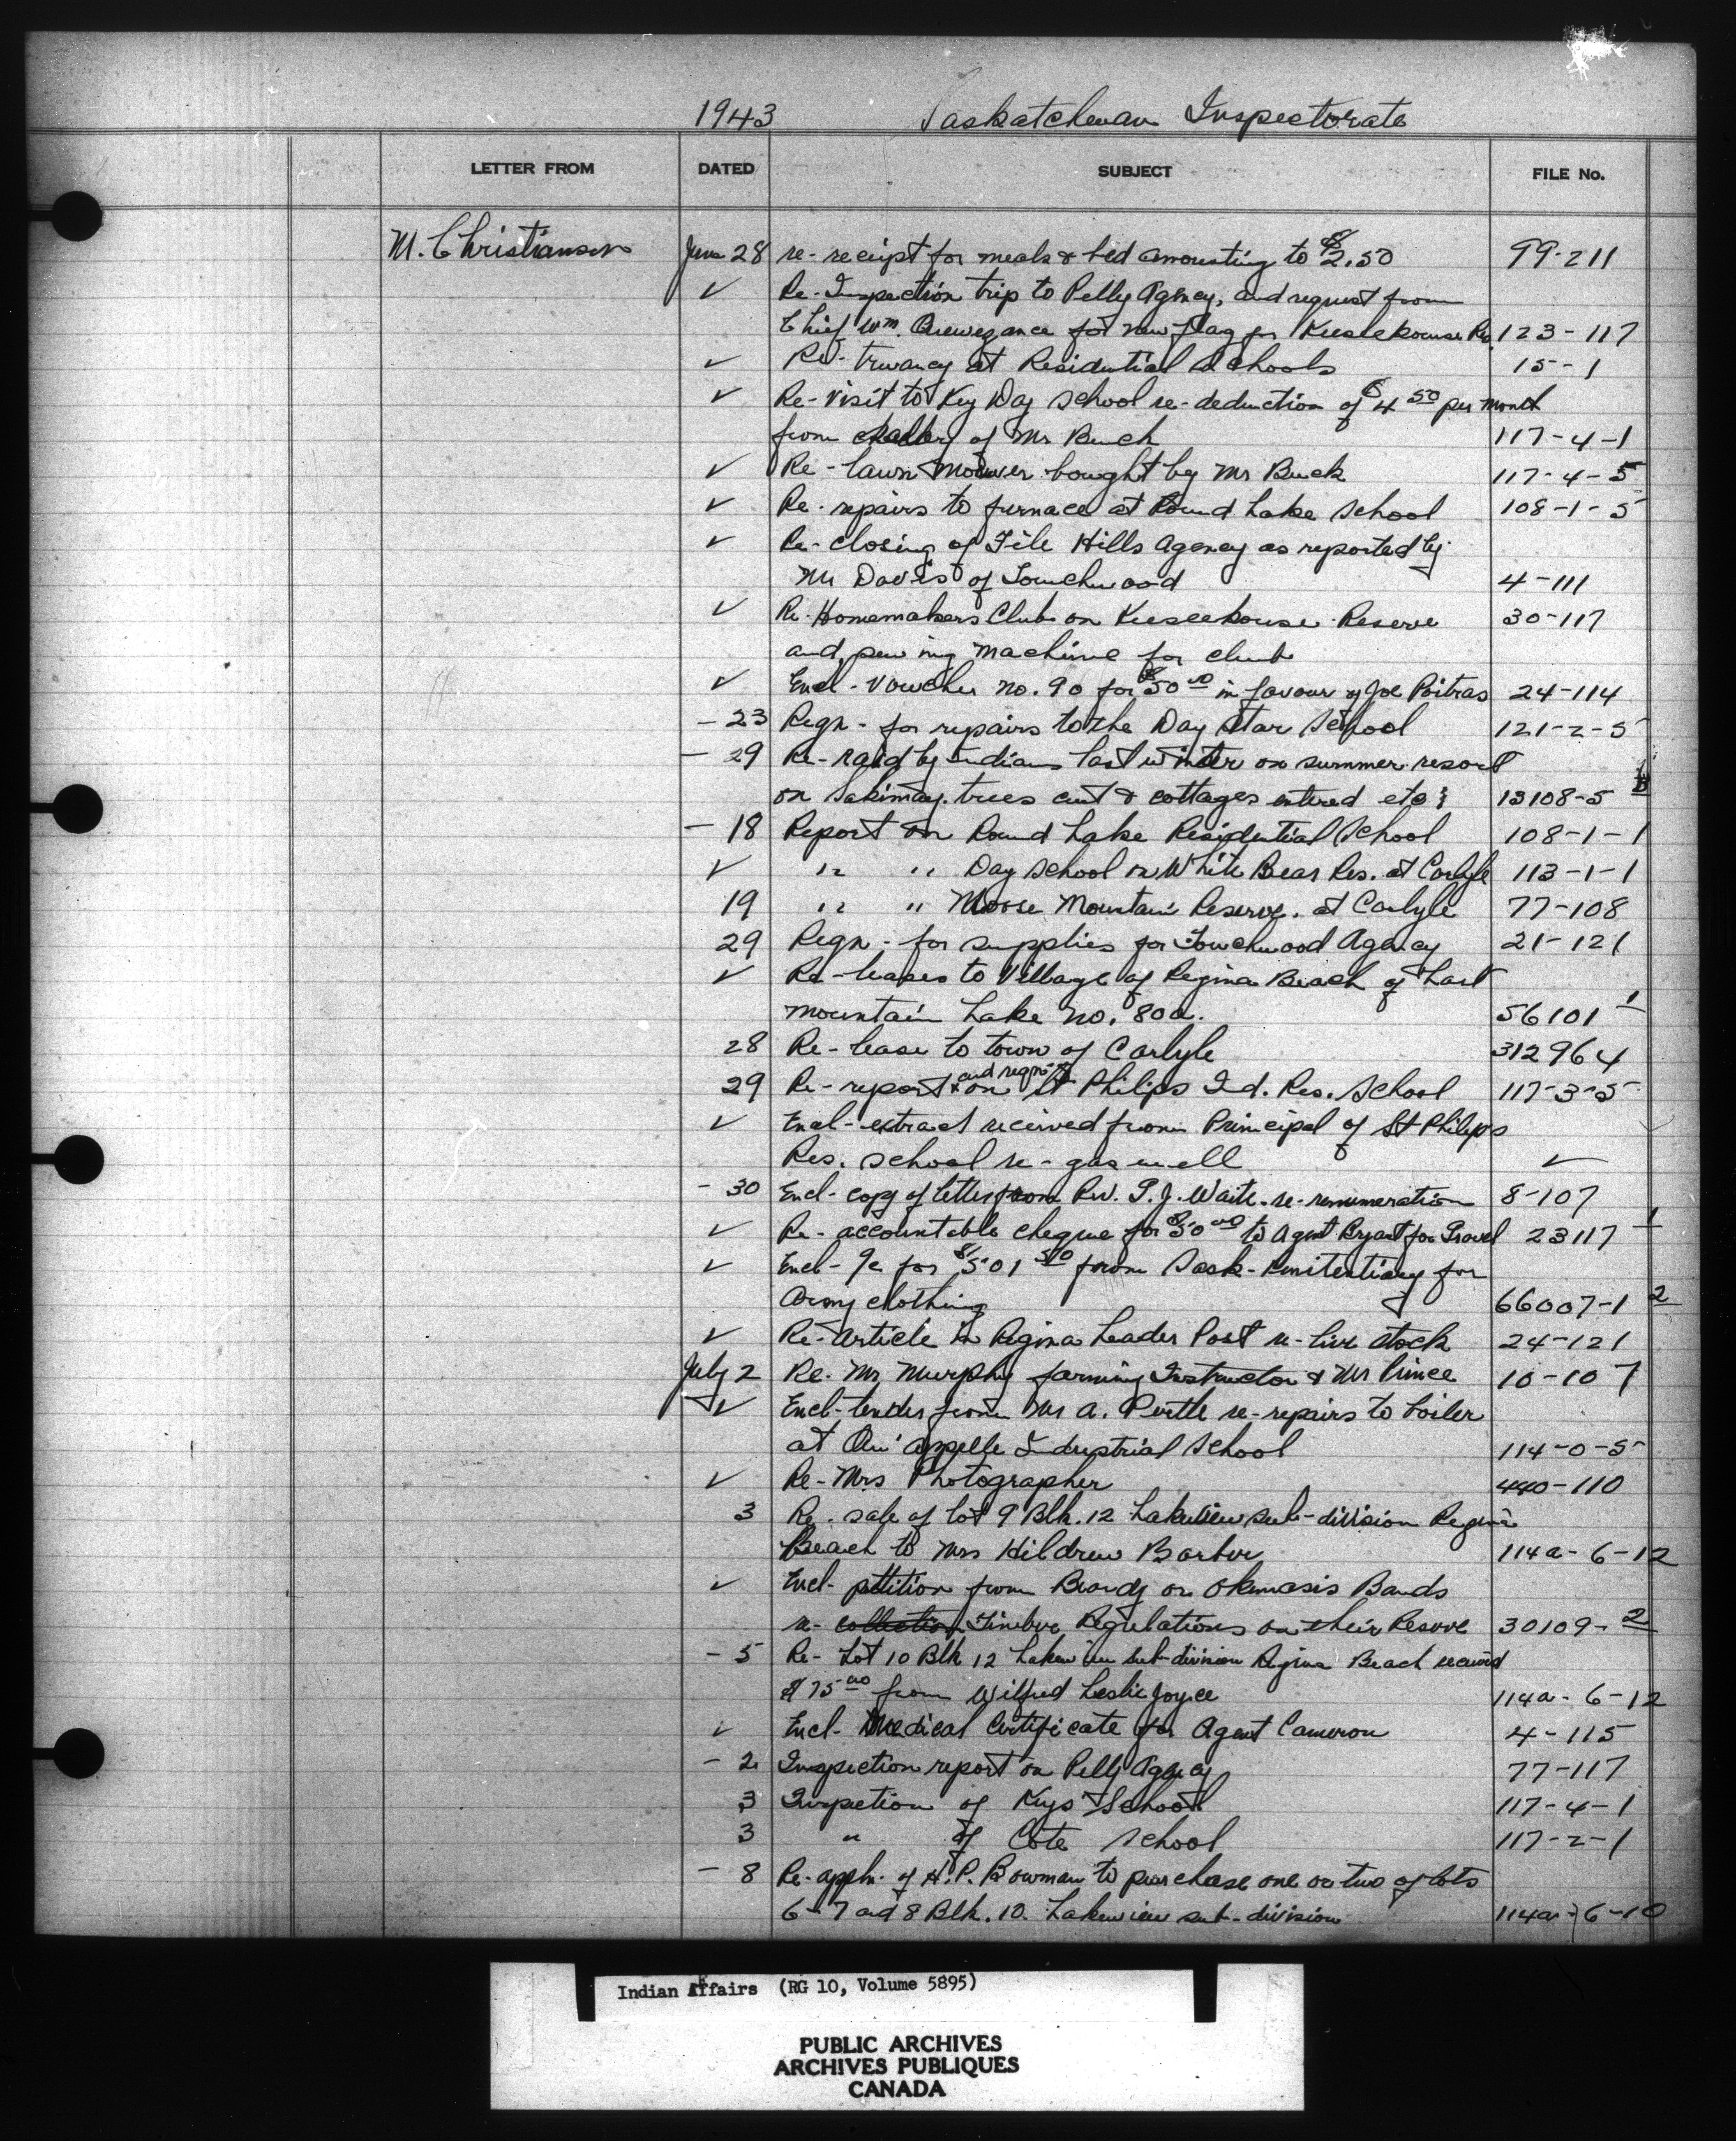 1943 Saskatchewan Inspectorate
LETTER FROM DATED SUBJECT FILE No.
M. Christianson June 28 re-receipt for meals & bed amounting to $2.50 99-211
✓ Re-Inspection trip to Pelly Agency, and request from
Chief Wm. Quewezance for new flag for Keeseekouse Res. 123-117
✓ Re-truancy at Residential Schools 15-1
✓ Re-visit to Key Day School re-deduction of $4 50 per month
from of Mr Buck 117-4-1
✓ Re-lawn Mower bought by Mr Buck 117-4-5
✓ Re-repairs to furnace at Round Lake School 108-1-5
✓ Re-closing of File Hills Agency as reported by
Mr Davis of Touchwood 4-111
✓ Re-Homemakers Club on Keeseekouse Reserve 30-117
and sewing machine for club
✓ Encl-Voucher no. 90 for $50 00 in favour of Joe Poitras 24-114
- 23 Reqn-for repairs to the Day Star School 121-2-5
- 29 Re-raid by Indians last winter on summer resort
on Sakimay. trees cut & cottages entered etc; 13108-5
- 18 Report on Round Lake Residential School 108-1-1
✓ " " Day School on White Bear Res. at Carlyle 113-1-1
19 " " Moose Mountain Reserve. at Carlyle 77-108
29 Reqn-for supplies for Touchwood Agency 21-121
✓ Re-leases to Village of Regina Beach of Last
mountain Lake no. 80a. 56101 1
28 Re-lease to town of Carlyle 312964
29 Re-report and reqn on St Philips Ind. Res. School 117-3-5
✓ Encl-extract received from Principal of St Philips
Res. School re-gas well ✓
- 30 Encl-copy of letter from Rev. P. J. Waite-re-remuneration 8-107
✓ Re-accountable cheque for $50 00 to Agent Bryant for Travel 23117 1
✓ Encl-%c for $501 50 from Sask-Penitentiary for
Army clothing 66007-1 2
✓ Re-article in Regina Leader Post re-live stock 24-121
July 2 Re-Mr Murphy farming Instructor & Mr Prince 10-107
✓ Encl-tender from Mr A. Purtle re-repairs to boiler
at Qu'appelle Industrial School 114-0-5
✓ Re-Mrs Photographer 440-110
3 Re-sale of lot 9 Blk. 12 Lakeview sub-division Regina
Beach to Mrs Hildrew Barber 114a-6-12
✓ Encl-petition from Beardy or Okemasis Bands
re-collection Timber Regulations on their Reserve 30109-2
- 5 Re-Lot 10 Blk 12 Lakeview sub-division Regina Beach received
$75 00 from Wilfred Leslie Joyce 114a-6-12
✓ Encl-Medical Certificate for Agent Cameron 4-115
- 2 Inspection report on Pelly Agency 77-117
3 Inspection of Keys School 117-4-1
3 " of Cote School 117-2-1
- 8 Re-appln. of H. P. Bowman to purchase one or two of lots
6-7 and 8 Blk. 10. Lakeview sub-division 114a-6-10
Indian Affairs (RG 10, Volume 5895)
PUBLIC ARCHIVES
ARCHIVES PUBLIQUES
CANADA